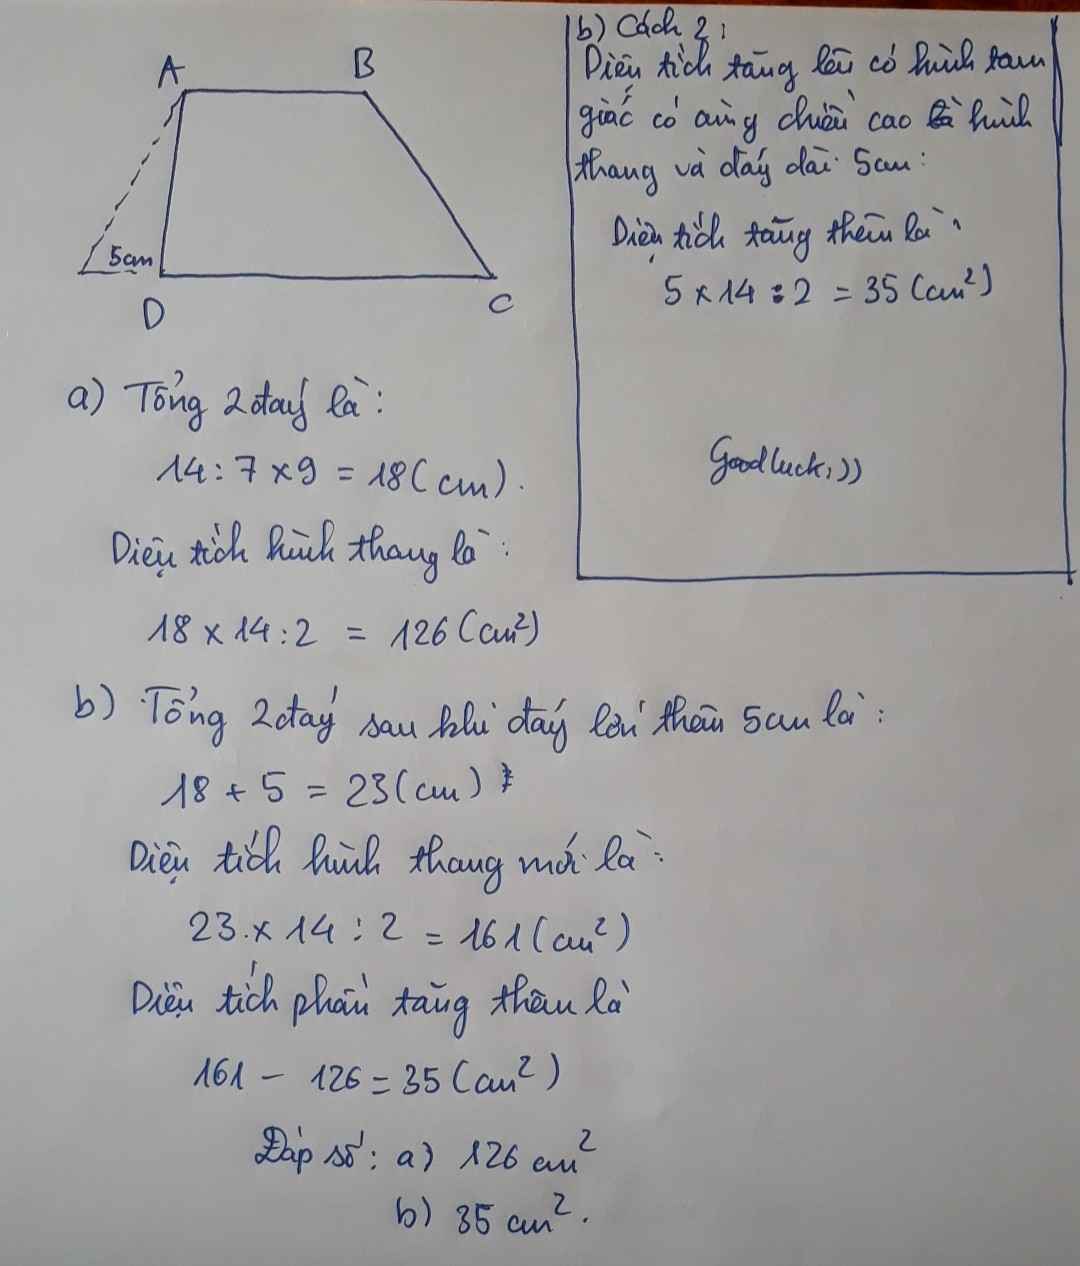 A
B
5cm
D
C
b) Cách 2:
Diện tích tăng lên có hình tam
giác có cùng chiều cao là hình
thang và đáy dài 5cm:
Diện tích tăng thêm là:
5 x 14 : 2 = 35 (cm²)
Good luck:))
a) Tổng 2 đáy là:
14 : 7 x 9 = 18 (cm).
Diện tích hình thang là:
18 x 14 : 2 = 126 (cm²)
b) Tổng 2 đáy sau khi đáy lớn thêm 5cm là:
18 + 5 = 23 (cm)
Diện tích hình thang mới là:
23 x 14 : 2 = 161 (cm²)
Diện tích phần tăng thêm là
161 - 126 = 35 (cm²)
Đáp số: a) 126 cm²
b) 35 cm².